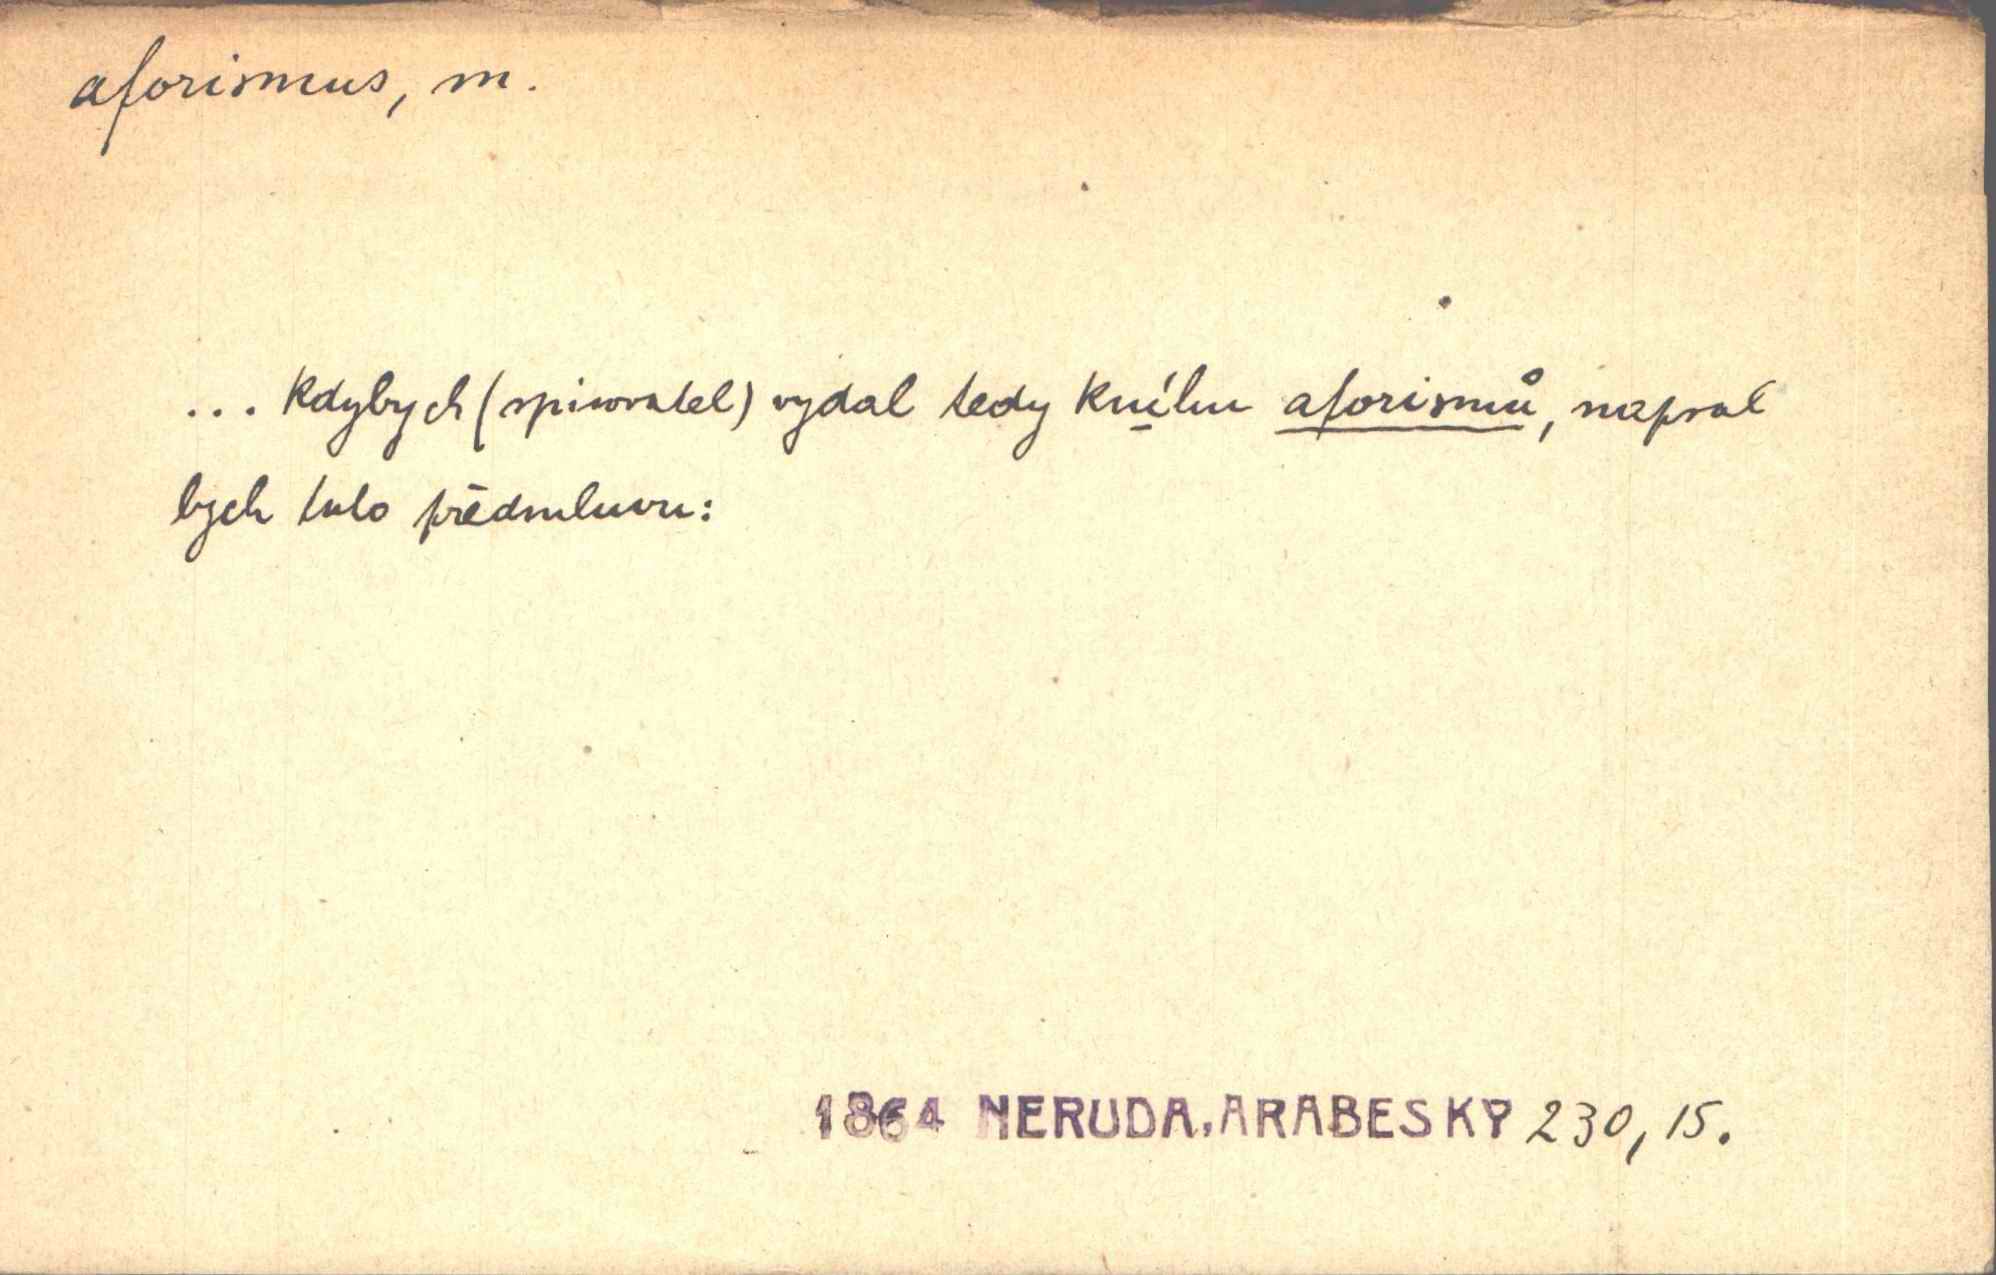 aforismus, m.
... kdybych (spisovatel) vydal tedy knihu aforismů, napsal
bych tuto předmluvu:
1864 NERUDA, ARABESKY 230, 15.